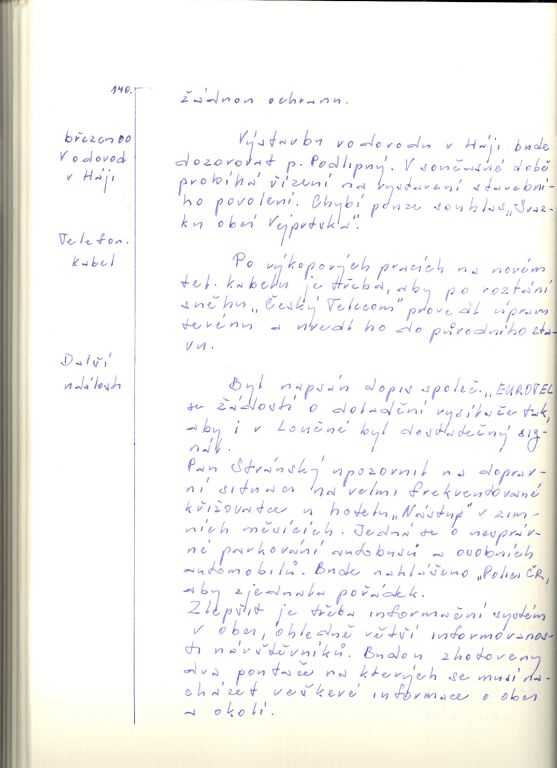 140.
žádnou ochranu.
březen 00
Vodovod
v Háji
Výstavbu vodovodu v Háji bude
dozorovat p. Podlipný. V současné době
probíhá řízení na vystavení stavební-
ho povolení. Chybí pouze souhlas „Svaz-
ku obcí Vejprtska".
Telefon.
kabel
Po výkopových pracích na novém
tel. kabelu je třeba, aby po roztání
sněhu „Český Telecom" provedl úpravu
terénu a uvedl ho do původního sta-
vu.
Další
události
Byl napsán dopis společ. „EUROTEL
se žádostí o doladění vysílače tak,
aby i v Loučné byl dostatečný sig-
nál.
Pan Stránský upozornil na doprav-
ní situaci na velmi frekventované
křižovatce u hotelu „Nástup" v zim-
ních měsících. Jedná se o nespráv-
né parkování autobusů a osobních
automobilů. Bude nahlášeno „Policii ČR,
aby zjednala pořádek.
Zlepšit je třeba informační systém
v obci, ohledně větší informovanos-
ti návštěvníků. Budou zhotoveny
dva poutače na kterých se musí na-
cházet veškeré informace o obci
a okolí.